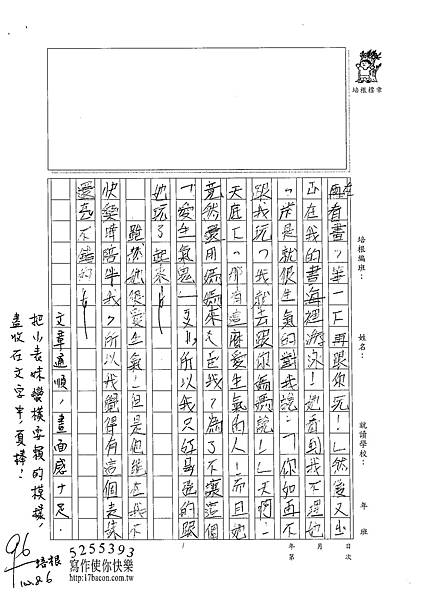 培根標章
培根編班：
姓名：
就讀學校：
年 班
年 月 日 次
在看書，等一下再跟你玩！」然後又
正在我的書海裡游泳！她看到我不理她
，於是就很生氣的對我說：「你如再不
跟我玩，我就去跟你媽媽說！」天啊！
天底下，那有這麼愛生氣的人！而且她
竟然愛用媽媽來
「愛生氣鬼」
所以我只好
的跟
她玩了起來。
雖然她很愛生氣！但是
快樂時陪伴我，所以我覺得有這個表妹
還是不錯的！
文章通順，畫面感十足，
把小表妹
的模樣，
盡收在文字中，真棒！
96
培根
5255393
寫作使你快樂
http://17bacon.com.tw